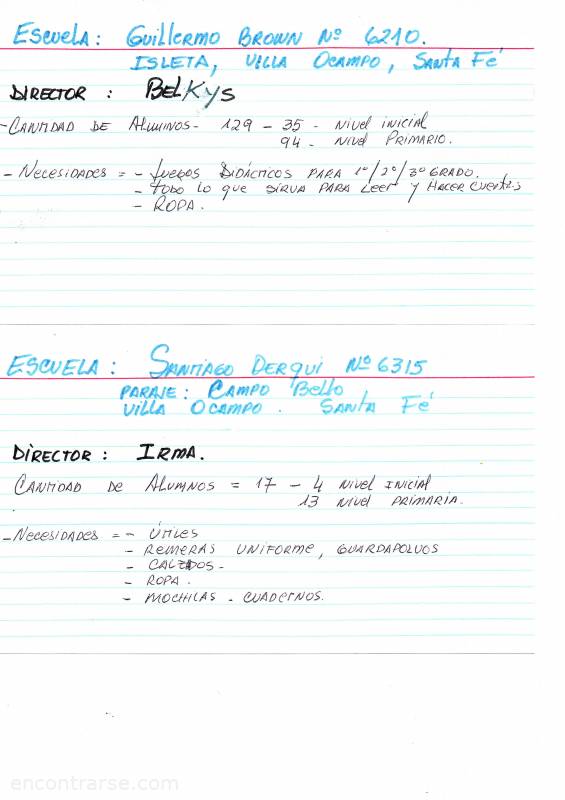 Escuela: Guillermo Brown Nº 6210.
Isleta, Villa Ocampo, Santa Fé
Director: Belkys
- Cantidad de Alumnos - 129 - 35 - Nivel inicial
94 - Nivel Primario.
- Necesidades = - Juegos Didácticos para 1º/2º/3º grado.
- todo lo que sirva para leer y hacer cuentas
- Ropa.
Escuela: Santiago Derqui Nº 6315
Paraje: Campo Bello
Villa Ocampo. Santa Fé
Director: Irma.
Cantidad de Alumnos = 17 - 4 Nivel inicial
13 Nivel primaria.
- Necesidades = - Útiles
- Remeras uniforme, guardapolvos
- Calzados -
- Ropa.
- Mochilas - cuadernos.
encontrarse.com